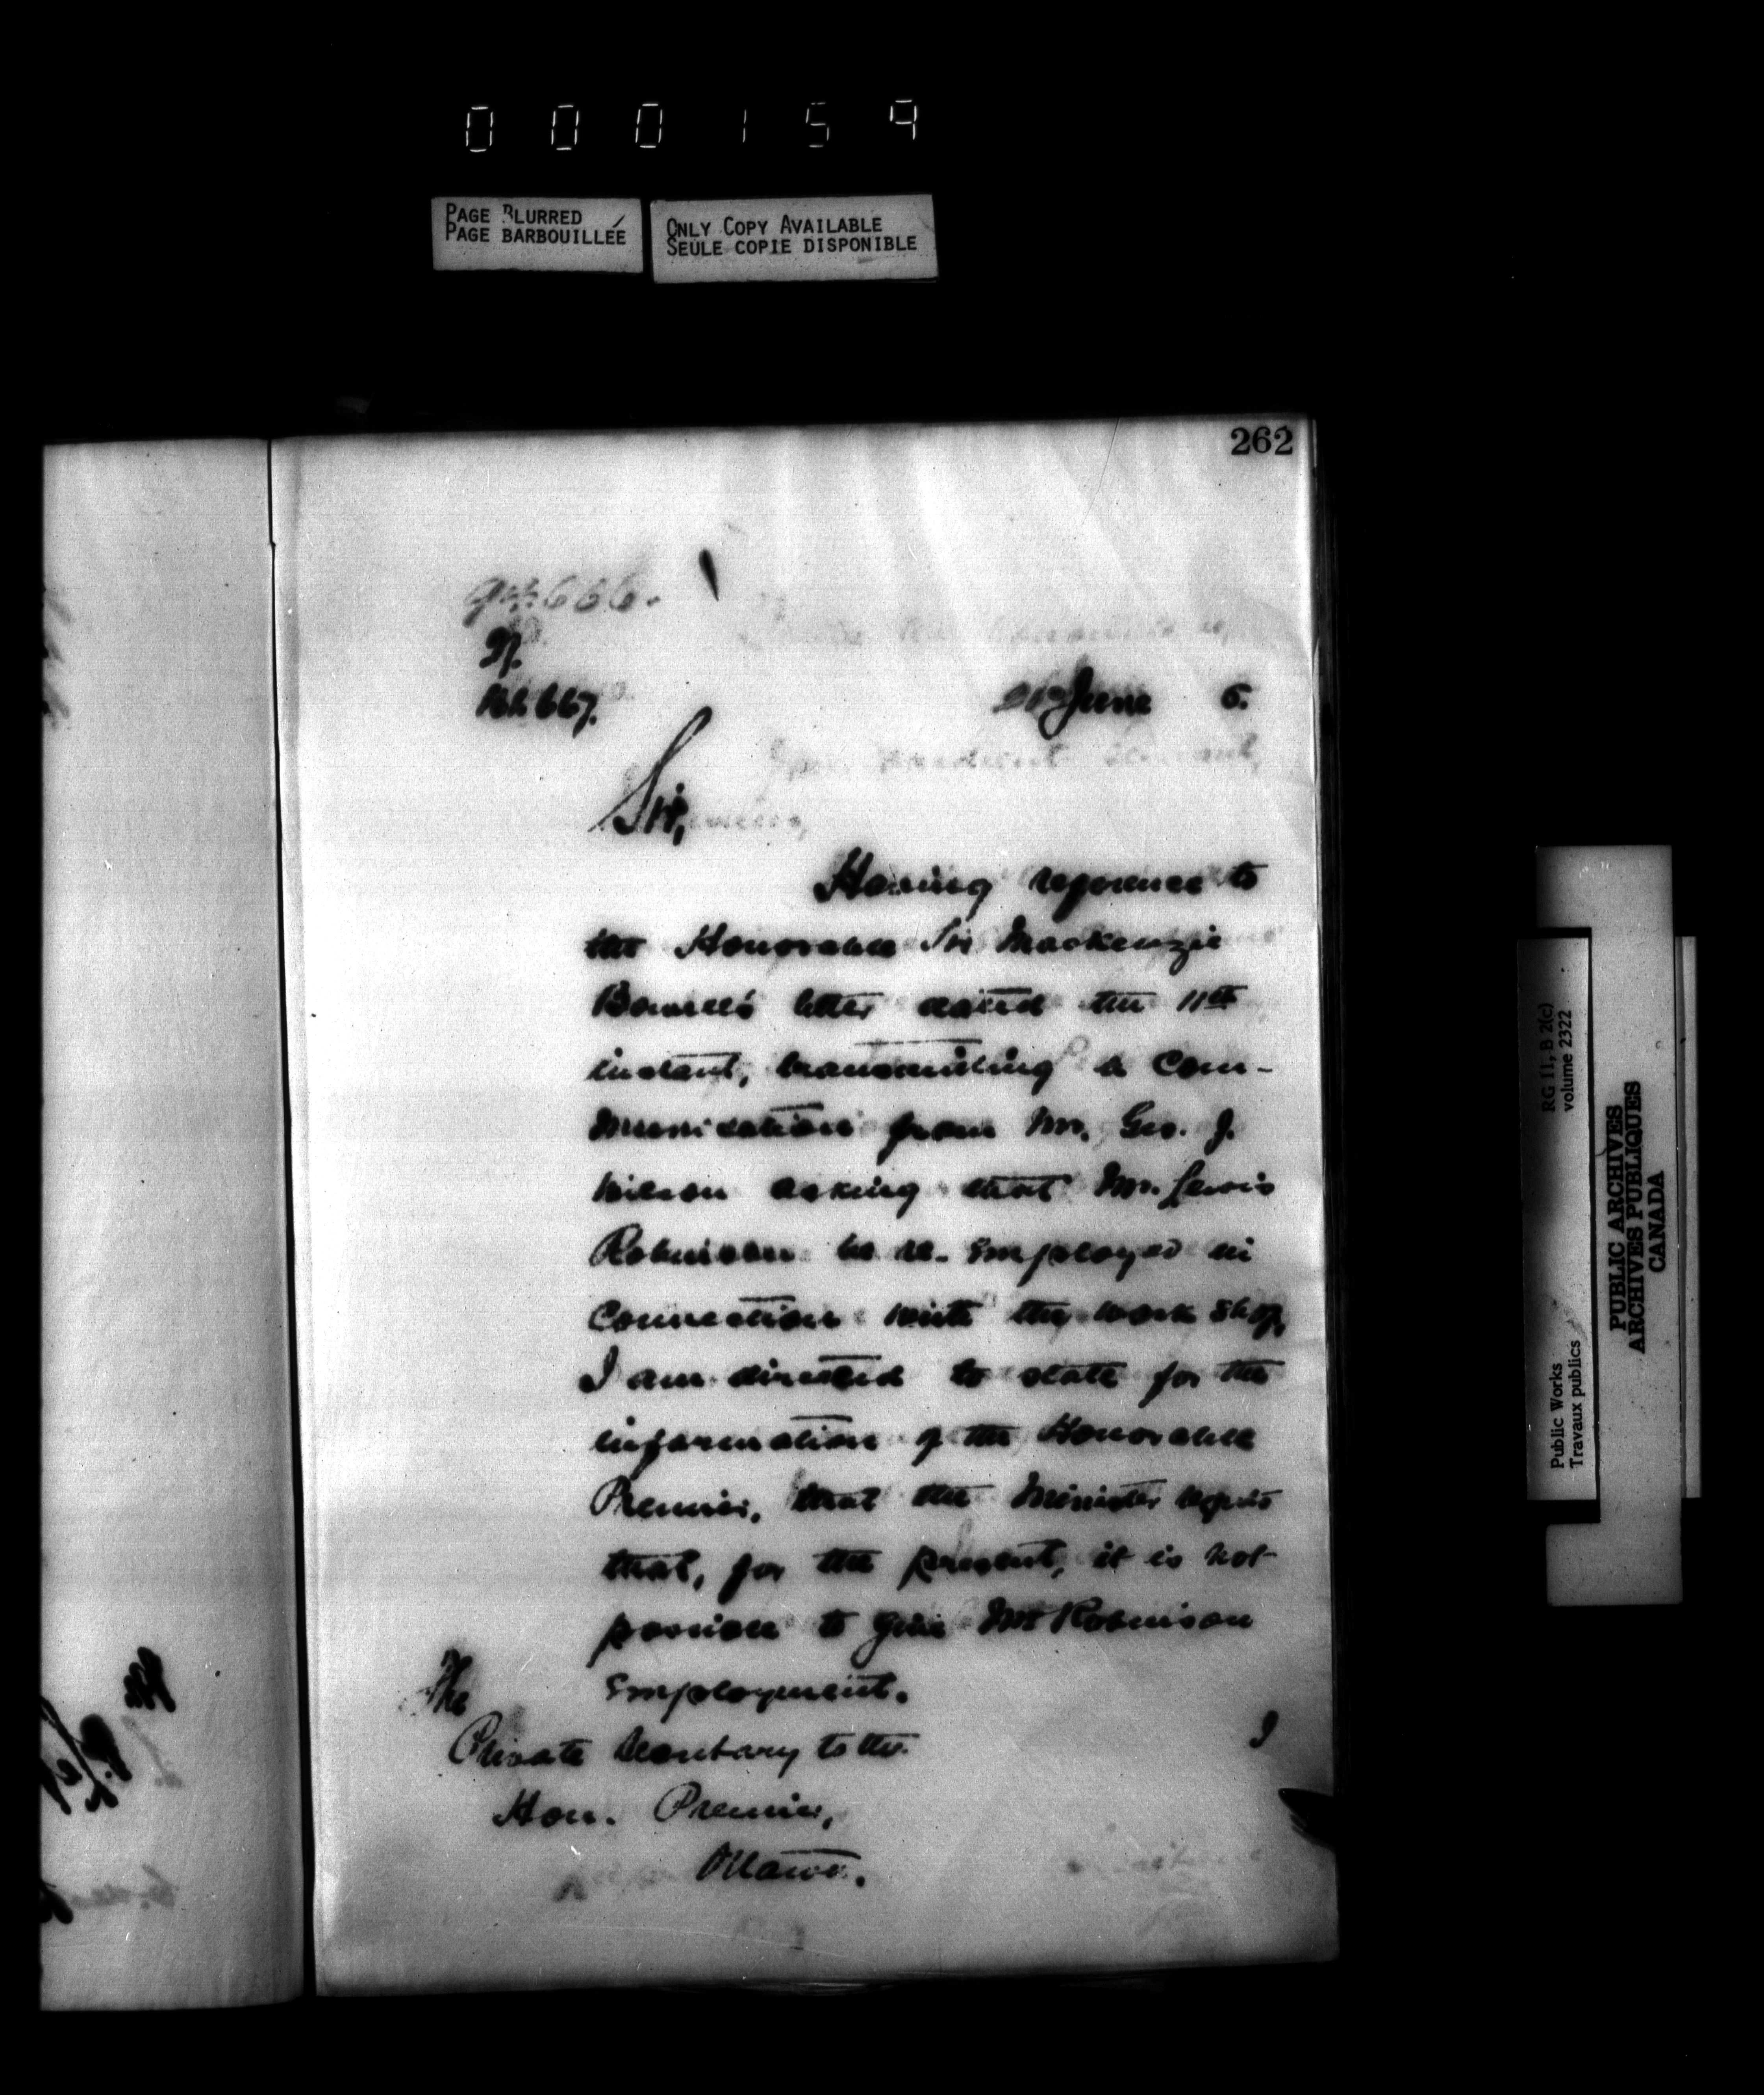 000159
PAGE BLURRED
PAGE BARBOUILLÉE
ONLY COPY AVAILABLE
SEULE COPIE DISPONIBLE
262
666.
667.
21st June 5.
Sir,
Having reference to
the Honorable Sir Mackenzie
Bowell's letter dated the 11th
instant, transmitting a Com-
munication from Mr. Geo. J.
Wilson asking that Mr. Lewis
Robinson be re-employed in
Connection with the work shop,
I am directed to state for the
information of the Honorable
Premier, that the Minister regrets
that, for the present, it is not
possible to give Mr Robinson
Employment.
The
Private Secretary to the
Hon. Premier,
Ottawa.
I
RG 11, B 2(c)
volume 2322
Public Works
Travaux publics
PUBLIC ARCHIVES
ARCHIVES PUBLIQUES
CANADA